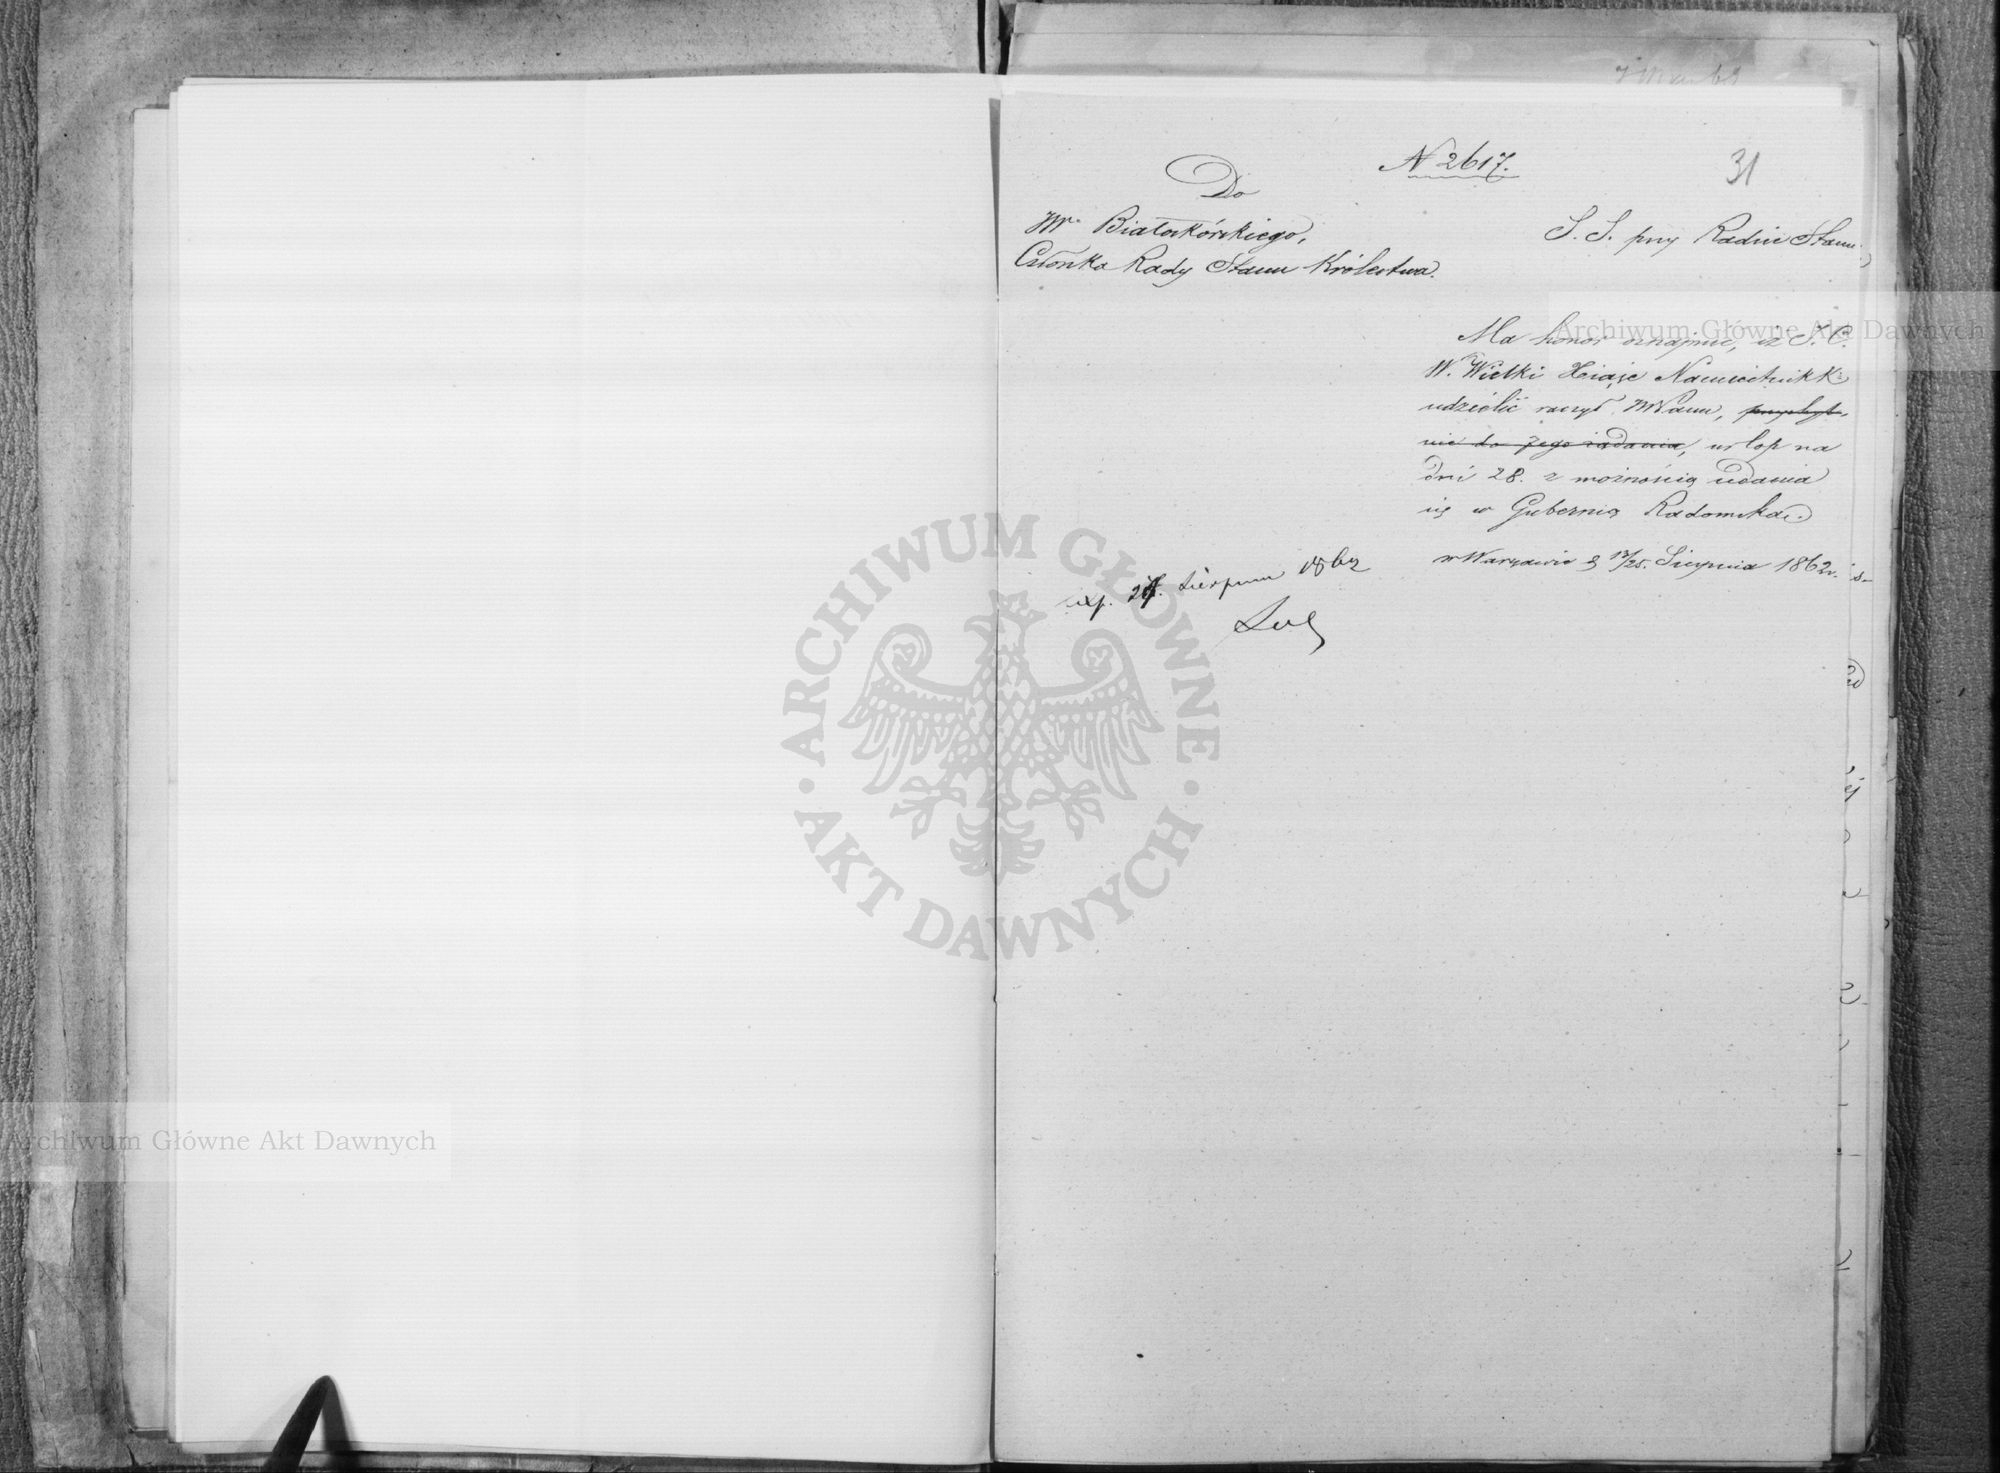 N 2617.
31
Do
W<sup>o</sup> Białoskórskiego,
Członka Rady Stanu Królestwa.
S. S. przy Radzie Stanu
Ma honor oznajmić, iż J. C.
W. Wielki Xiąże Namiestnik K
udzielić raczył WPanu, przychyl-
nie do Jego żądania, urlop na
dni 28. z możnością udania
się w Gubernią Radomską.
w Warszawie d 13/25. Sierpnia 1862 r.
exp. Sierpnia 1862
Archiwum Główne Akt Dawnych
Archiwum Główne Akt Dawnych
ARCHIWUM GŁÓWNE
AKT DAWNYCH